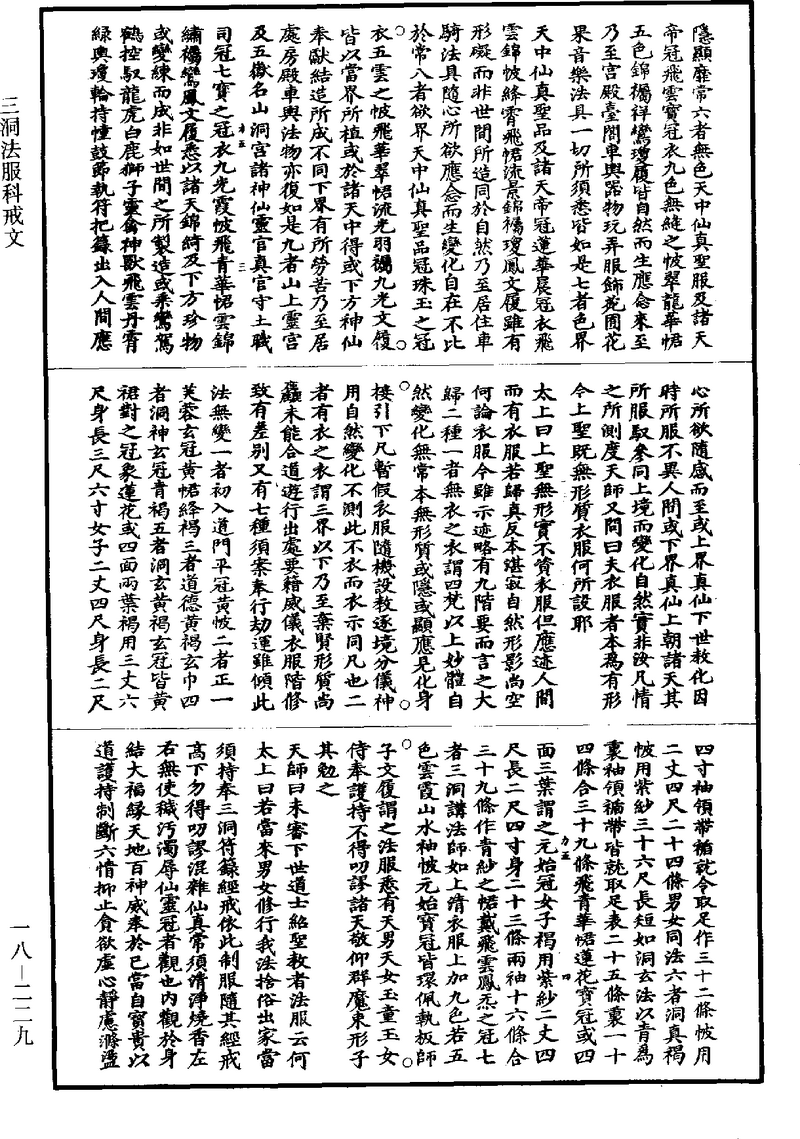 隱顯靡常六者無色天中仙真聖服及諸天
帝冠飛雲寶冠衣九色無縫之帔翠龍華裙
五色錦襦祥鸞瓊履皆自然而生應念來至
乃至宮殿臺閣車輿器物玩弄服飾苑囿花
果音樂法具一切所須悉皆如是七者色界
天中仙真聖品及諸天帝冠蓮華晨冠衣飛
雲錦帔絳霄飛裙流景錦襦瓊鳳文履雖有
形礙而非世間所造同於自然乃至居住車
騎法具隨心所欲應念而生變化自在不比
於常八者欲界天中仙真聖品冠珠玉之冠
衣五雲之帔飛華翠裙流光羽襦九光文履
皆以當界所植或於諸天中得或下方神仙
奉獻結造所成不同下界有所勞苦乃至居
處房殿車輿法物亦復如是九者山上靈宮
及五嶽名山洞宮諸神仙靈官真官守土職
司冠七寶之冠衣九光霞帔飛青華裙雲錦
繡襦鸞鳳文履悉以諸天錦綺及下方珍物
或變練而成非如世間之所製造或乘鸞駕
鶴控馭龍虎白鹿獅子靈禽神獸飛雲丹霄
綠輿瓊輪持幢鼓節執符把籙出入人間應
心所欲隨感而至或上界真仙下世教化因
時所服不異人間或下界真仙上朝諸天其
所服馭參同上境而變化自然實非汝凡情
之所測度天師又問曰夫衣服者本為有形
今上聖既無形質衣服何所設耶
太上曰上聖無形實不資衣服但應迹人間
而有衣服若歸真反本堪寂自然形影尚空
何論衣服今雖示迹略有九階要而言之大
歸二種一者無衣之衣謂四梵以上妙體自
然變化無常本無形質或隱或顯應見化身
接引下凡暫假衣服隨機設教逐境分儀神
用自然變化不測此不衣而衣示同凡也二
者有衣之衣謂三界以下乃至棄賢形質尚
麤未能合道遊行出處要藉威儀衣服階修
致有差別又有七種須案奉行劫運雖傾此
法無變一者初入道門平冠黃帔二者正一
芙蓉玄冠黃裙絳褐三者道德黃褐玄巾四
者洞神玄冠青褐五者洞玄黃褐玄冠皆黃
裙對之冠象蓮花或四面兩葉褐用三丈六
尺身長三尺六寸女子二丈四尺身長二尺
四寸袖領帶楯就令取足作三十二條帔用
二丈四尺二十四條男女同法六者洞真褐
帔用紫紗三十六尺長短如洞玄法以青為
裏袖領褊帶皆就取足表二十五條裏一十
四條合三十九條飛青華裙蓮花寶冠或四
面三葉謂之元始冠女子褐用紫紗二丈四
尺長二尺四寸身二十三條兩袖十六條合
三十九條作青紗之裙戴飛雲鳳炁之冠七
者三洞講法師如上清衣服上加九色若五
色雲霞山水袖帔元始寶冠皆環佩執板師
子文履謂之法服悉有天男天女玉童玉女
侍奉護持不得叨謬諸天敬仰群魔束形子
其勉之
天師曰未審下世道士紹聖教者法服云何
太上曰若當來男女修行我法捨俗出家當
須持奉三洞符籙經戒依此制服隨其經戒
高下勿得叨謬混雜仙真常須清淨燒香左
右無使穢污濁辱仙靈冠者觀也內觀於身
結大福緣天地百神咸奉於己當自寶貴以
道護持制斷六情抑止貪欲虛心靜慮滌盪
三洞法服科戒文
一八—二二九